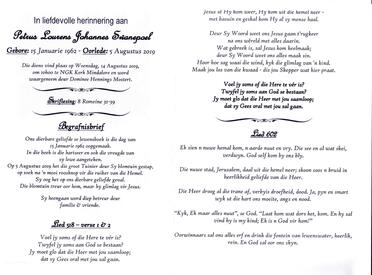 In liefdevolle herinnering aan
Petrus Lourens Johannes Swanepoel
Gebore: 15 Januarie 1962 - Oorlede: 5 Augustus 2019
Die diens vind plaas op Woensdag, 14 Augustus,
om 10h00 te NGK Kerk Mindalore en word
waargeneem deur Dominee Henning Mosters.
Skriflesing: 8 Romeine 31-39
Begrafnisbrief
Ons dierbare geliefde se lewensboek is die dag van
15 Januarie 1962 oopgemaak.
In die boek is die hartseer en ook die vreugde van
sy lewe aangeteken.
Op 5 Augustus 2019 het die groot Tuinier deur Sy blomtuin gestap,
op soek na 'n mooi roosknop vir die ruiker van die Hemel.
Sy oog het op ons dierbare geliefde geval.
Die blomtuin treur oor hom, maar hy glimlag vir Jesus.
Sy heengaan word diep betreur deur
familie & vriende.
Lied 518 - verse 1 & 2
Voel jy soms of die Here te vêr is?
Twyfel jy soms aan God se bestaan?
Jy moet glo dat die Heer met jou saamloop;
dat sy Gees oral met jou sal gaan.
Jesus sê Hy kom weer, Hy kom uit die hemel neer -
met basuin en geskal kom Hy al sy mense haal.
Deur Sy Woord weet ons Jesus gaan t'rugkeer
na ons wêreld met alles daarin.
Wat gebreek is, sal Jesus kom heelmaak;
deur sy Woord weet ons alles maak sin.
Hoor hoe sag waai die wind, kyk die glimlag van 'n kind.
Maak jou los van die kwaad - dis jou Skepper wat hier praat.
Voel jy soms of die Here te vêr is?
Twyfel jy soms aan God se bestaan?
Jy moet glo dat die Heer met jou saamloop;
dat sy Gees oral met jou sal gaan.
Lied 602
Ek sien 'n nuwe hemel kom, 'n aarde nuut en vry. Die see en al wat skei,
verdwyn. God self kom by ons bly.
Die nuwe stad, Jerusalem, daal uit die hemel neer; skoon soos 'n bruid in
heerlikheid geliefde van die Heer.
Die Heer droog al die trane af, verbyts droefheid, dood. Ja, pyn en smart
wyk uit die hart ons moeite, angs en nood.
"Kyk, Ek maak alles nuut", sê God, "Laat kom wat dors het, kom. En hy sal
vind hy is my kind; Ek is u God vir hom!"
Oorwinnaars sal ons alles erf en drink die fontein van lewenswater, heerlik,
rein. En God sal oor ons skyn.